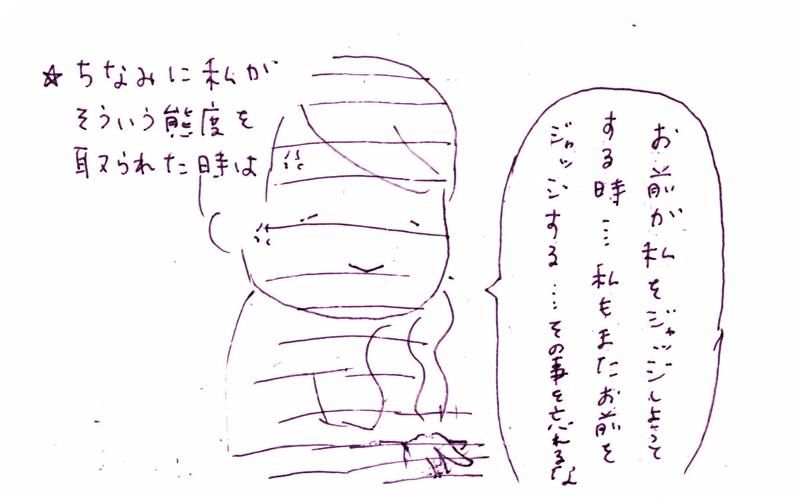 ☆ちなみに私が
そういう態度を
取られた時は
お前が私をジャッジしよって
する時…私もまたお前を
ジャッジする…その事を忘れるな